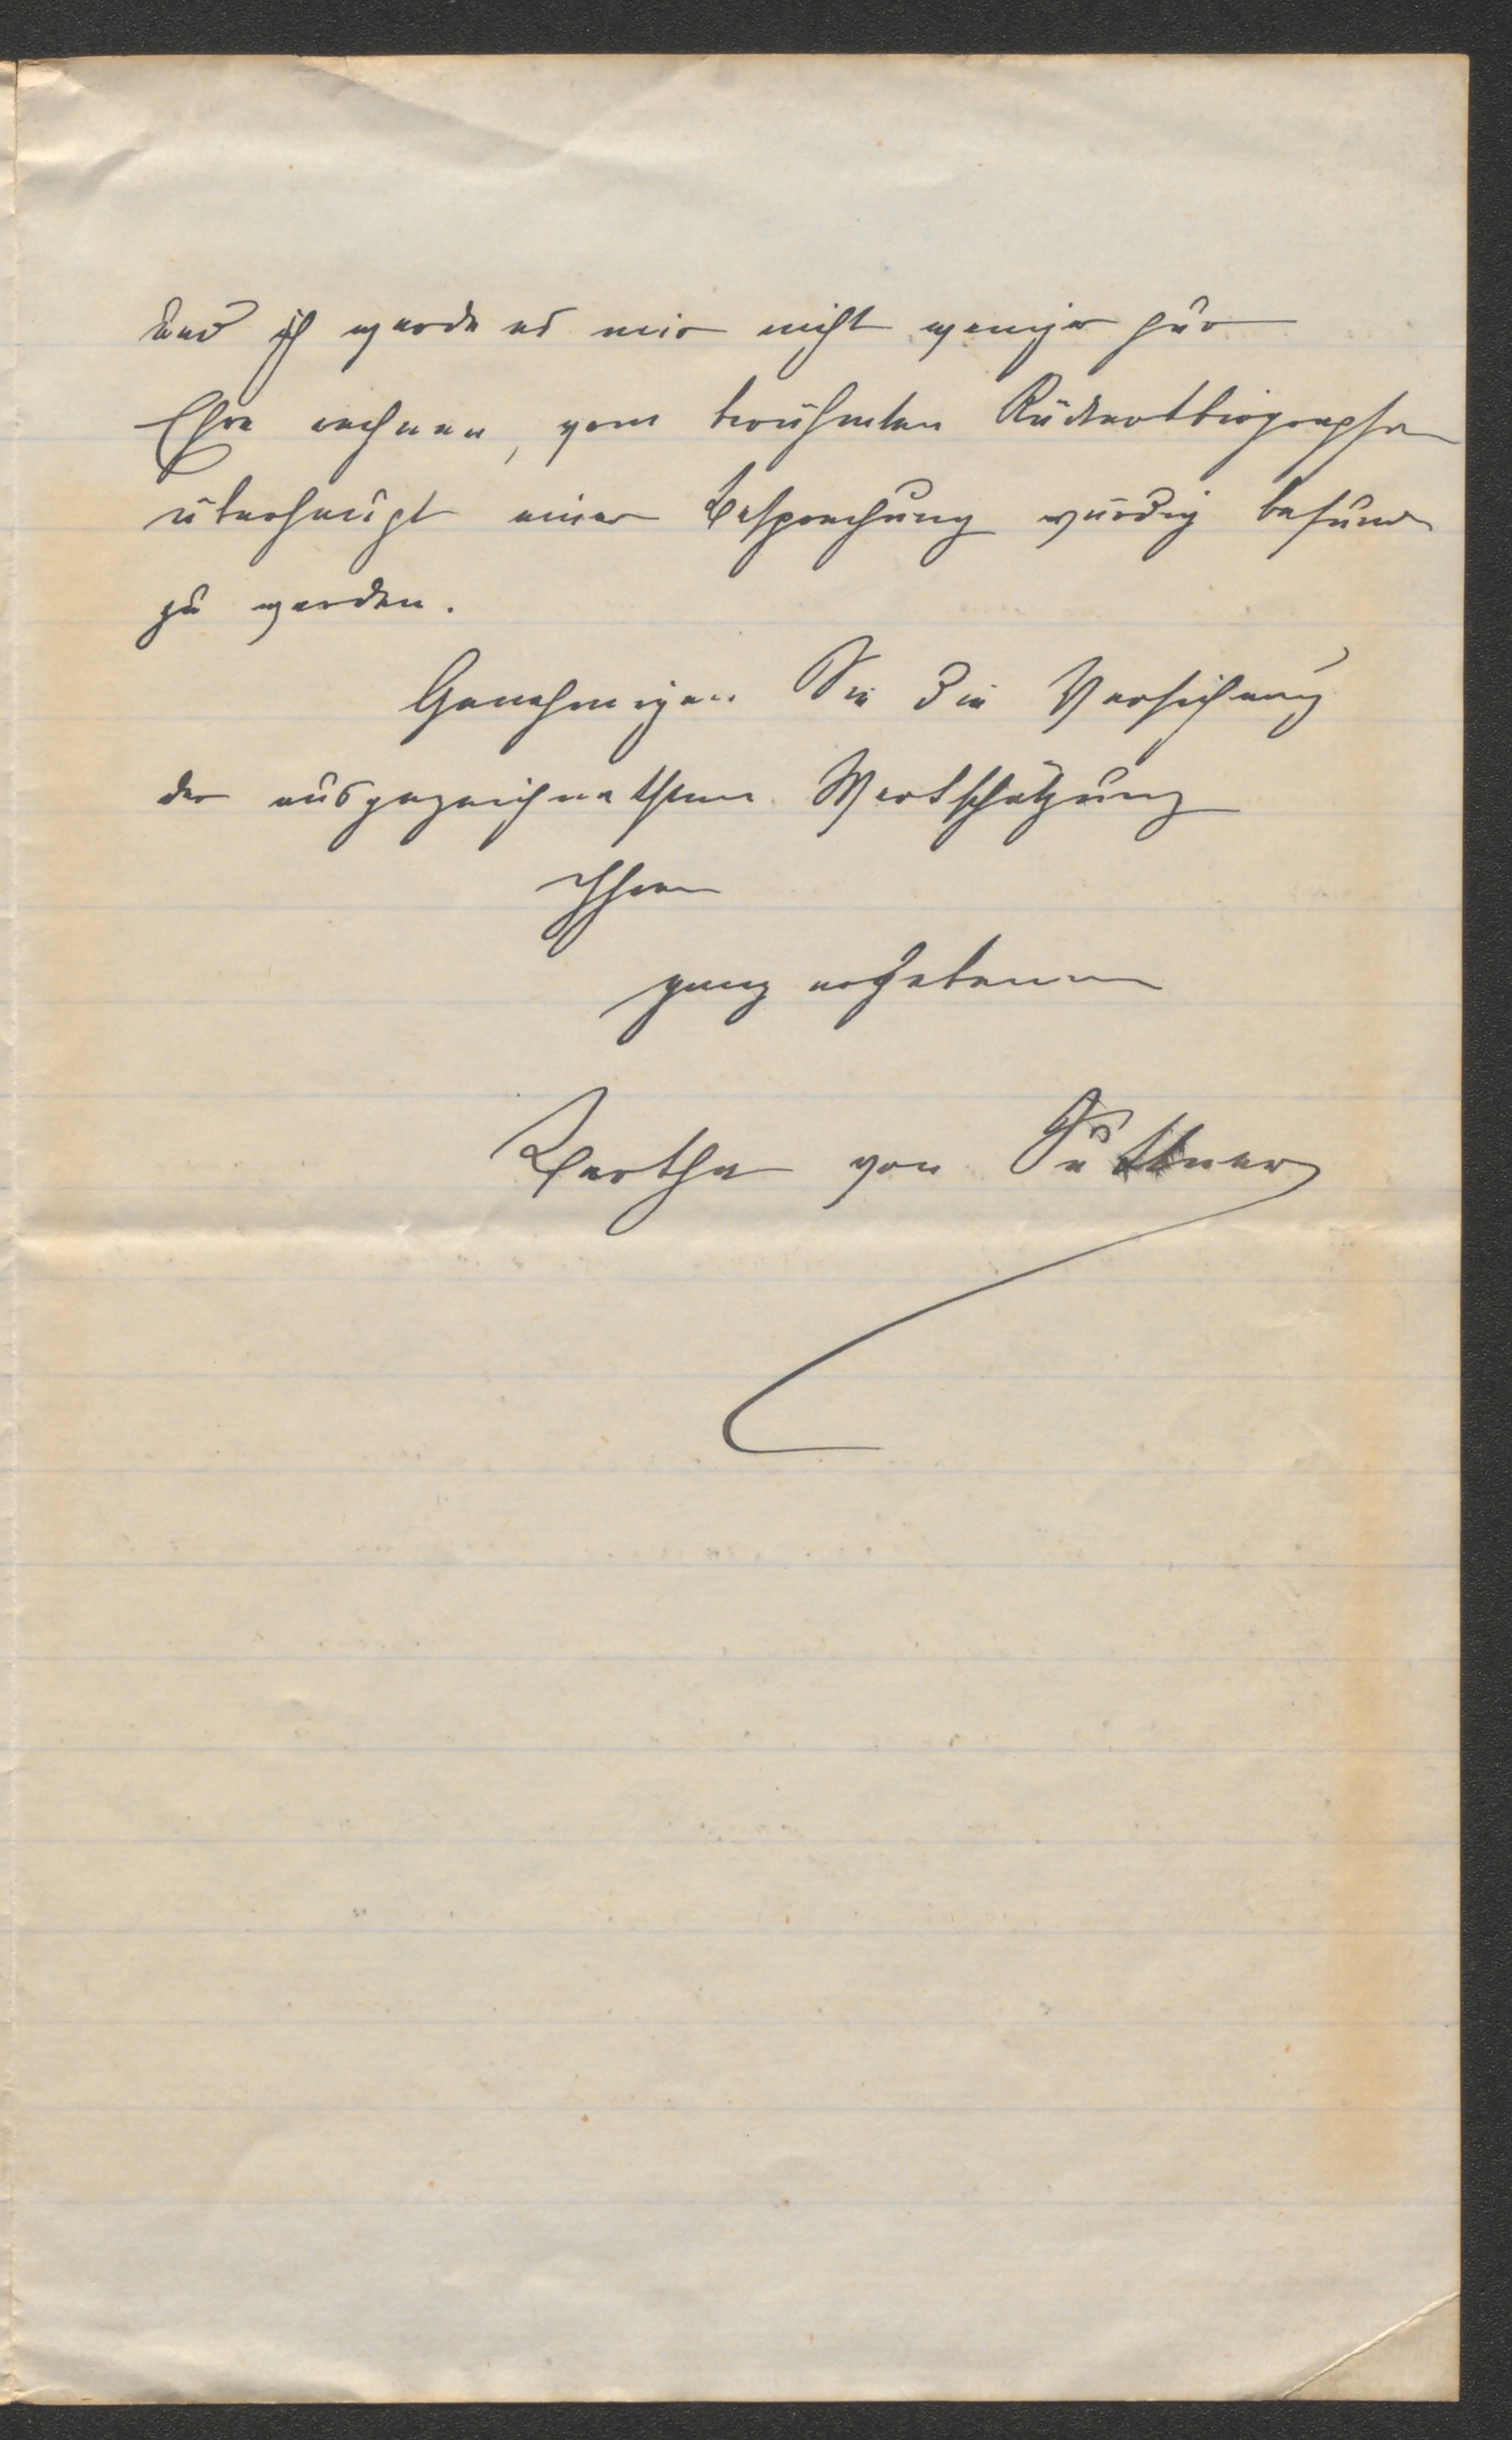 und ich werde es mir nicht weniger zur
Ehre rechnen, vom berühmten Rückertbiographen
überhaupt einer Besprechung würdig befunden
zu werden.
Genehmigen Sie die Versicherung
der ausgezeichnetsten Wertschätzung
Ihrer
ganz ergebenen
Bertha von Suttner